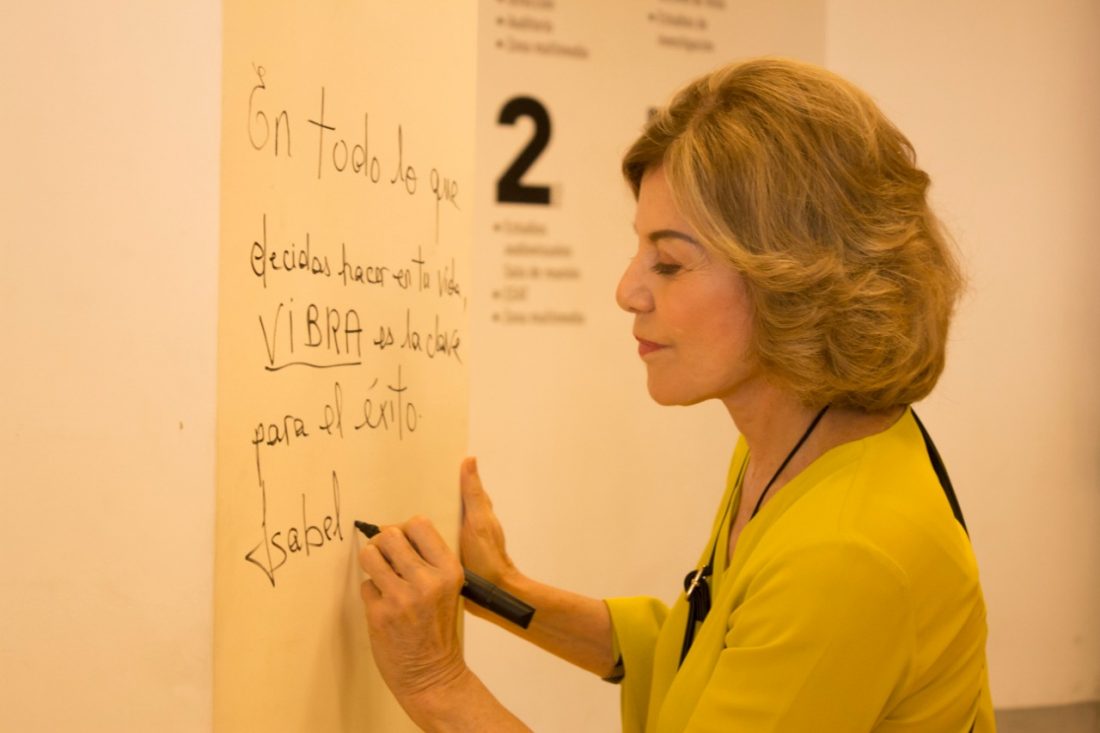 En todo lo que
decidas hacer en tu vida,
VIBRA es la clave
para el éxito.
Isabel
2
• Estudios
audiovisuales
Sala de reunión
• Zona multimedia
• Auditorio
• Zona multimedia
• Estudios de
investigación